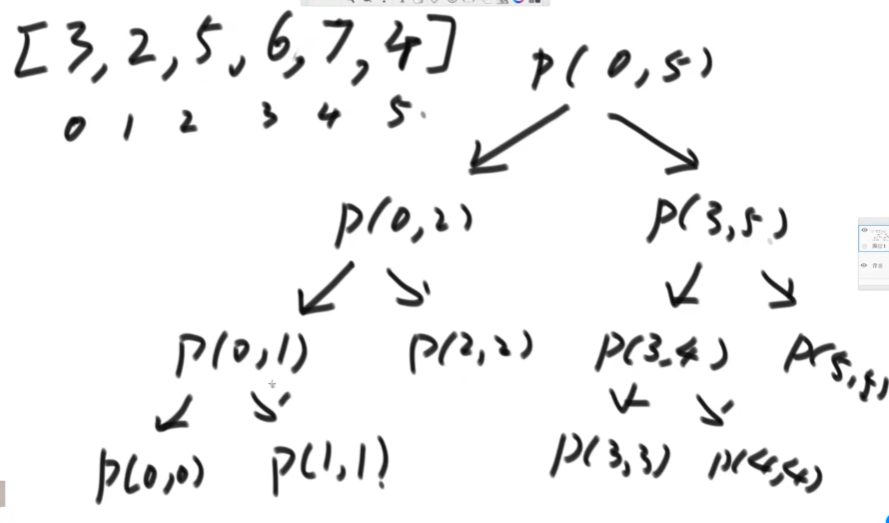 [3, 2, 5, 6, 7, 4]
0 1 2 3 4 5.
P(0,5)
P(0,2) P(3,5)
P(0,1) P(2,2) P(3.4) P(5,5)
P(0,0) P(1,1) P(3,3) P(4,4)